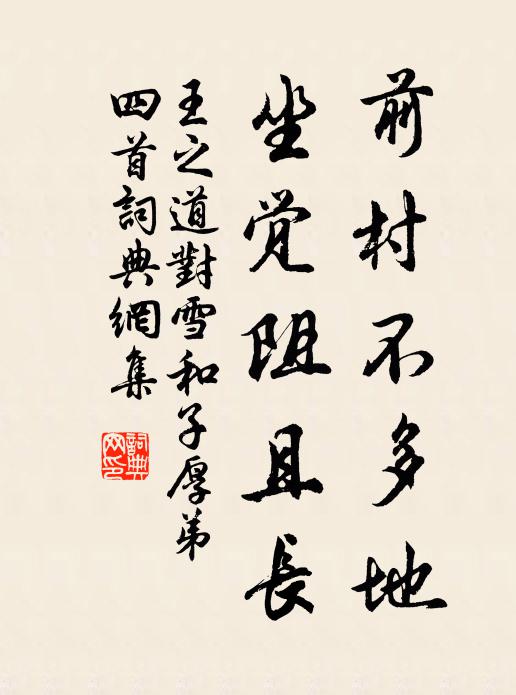 前村不多地
坐觉阻且長
王之道對雪和子厚弟
四首詞典網集
詞典网印